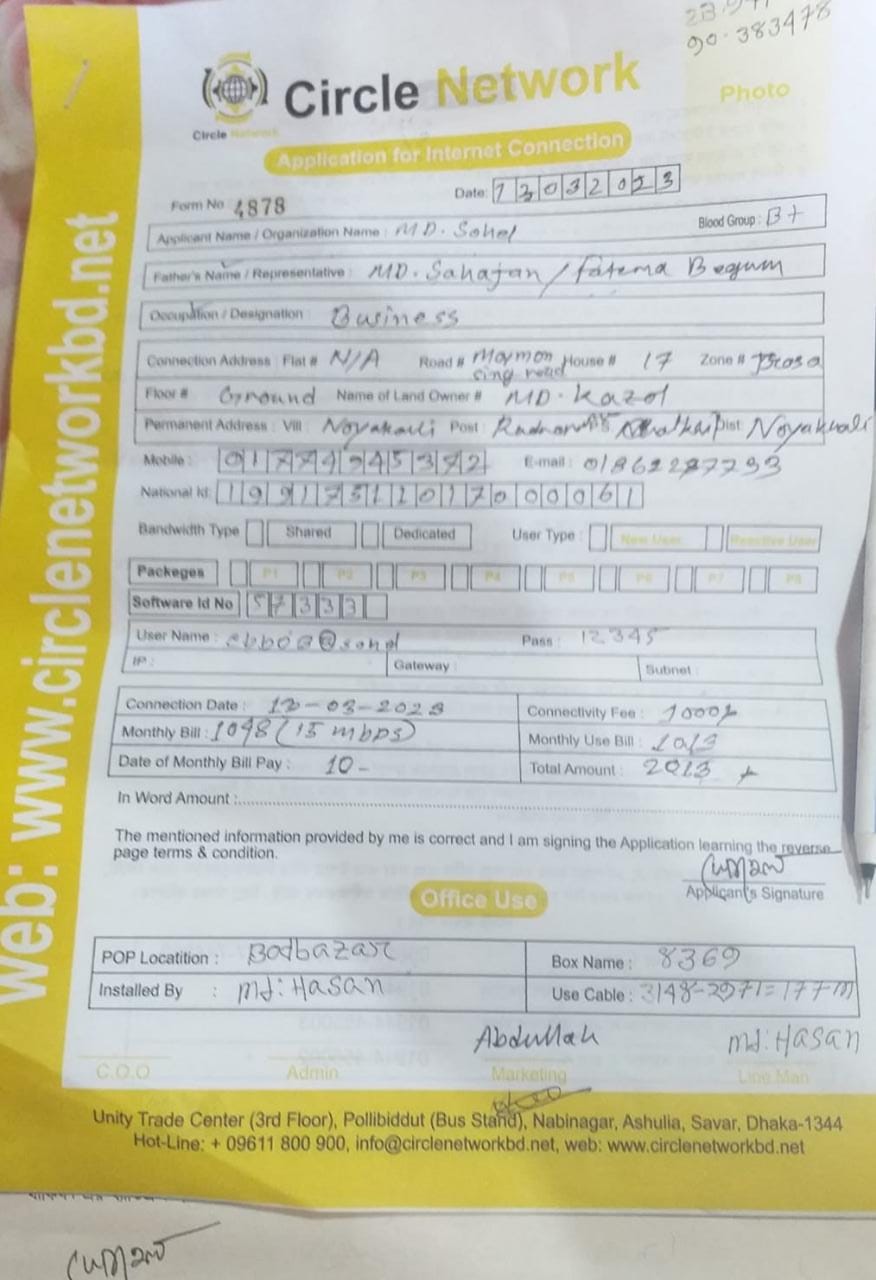 90.383478
Circle Network
Photo
Circle Network
Application for Internet Connection
Date: 13032023
Form No 4878
Applicant Name / Organization Name : MD. Sohel Blood Group : B+
Father's Name / Representative : MD. Sahajan / Fatema Begum
Occupation / Designation : Business
Connection Address : Flat # N/A Road # Moymon sing road House # 17 Zone #
Floor # Ground Name of Land Owner # MD. Kazol
Permanent Address : Vill : Noyakhali Post : Dist : Noyakhali
Mobile : E-mail : 01861287793
National Id:
Bandwidth Type Shared Dedicated User Type : New User Reactive User
Packeges P1 P2 P3 P4 P5 P6 P7 P8
Software Id No 57333
User Name : Pass : 12345
IP : Gateway : Subnet :
Connection Date : 13-03-2023 Connectivity Fee : 1000/-
Monthly Bill : 1048 (15 mbps) Monthly Use Bill : 1013
Date of Monthly Bill Pay : 10- Total Amount : 2013
In Word Amount :
The mentioned information provided by me is correct and I am signing the Application learning the reverse
page terms & condition.
Applicant's Signature
Office Use
POP Locatition : Bodbazar Box Name : 8369
Installed By : Md: Hasan Use Cable : 3148-2971=177m
Abdullah Md: Hasan
C.O.O Admin Marketing Line Man
Unity Trade Center (3rd Floor), Pollibiddut (Bus Stand), Nabinagar, Ashulia, Savar, Dhaka-1344
Hot-Line: + 09611 800 900, info@circlenetworkbd.net, web: www.circlenetworkbd.net
web: www.circlenetworkbd.net